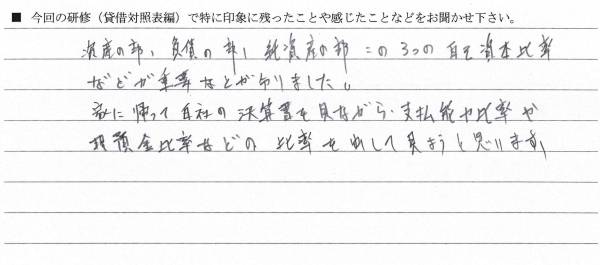 ■ 今回の研修（貸借対照表編）で特に印象に残ったことや感じたことなどをお聞かせ下さい。
資産の部、負債の部、純資産の部 この3つの自己資本比率
などが重要なことが分りました。
家に帰って自社の決算書を見ながら、支払能力比率や
現預金比率などの比率を出して見ようと思います。